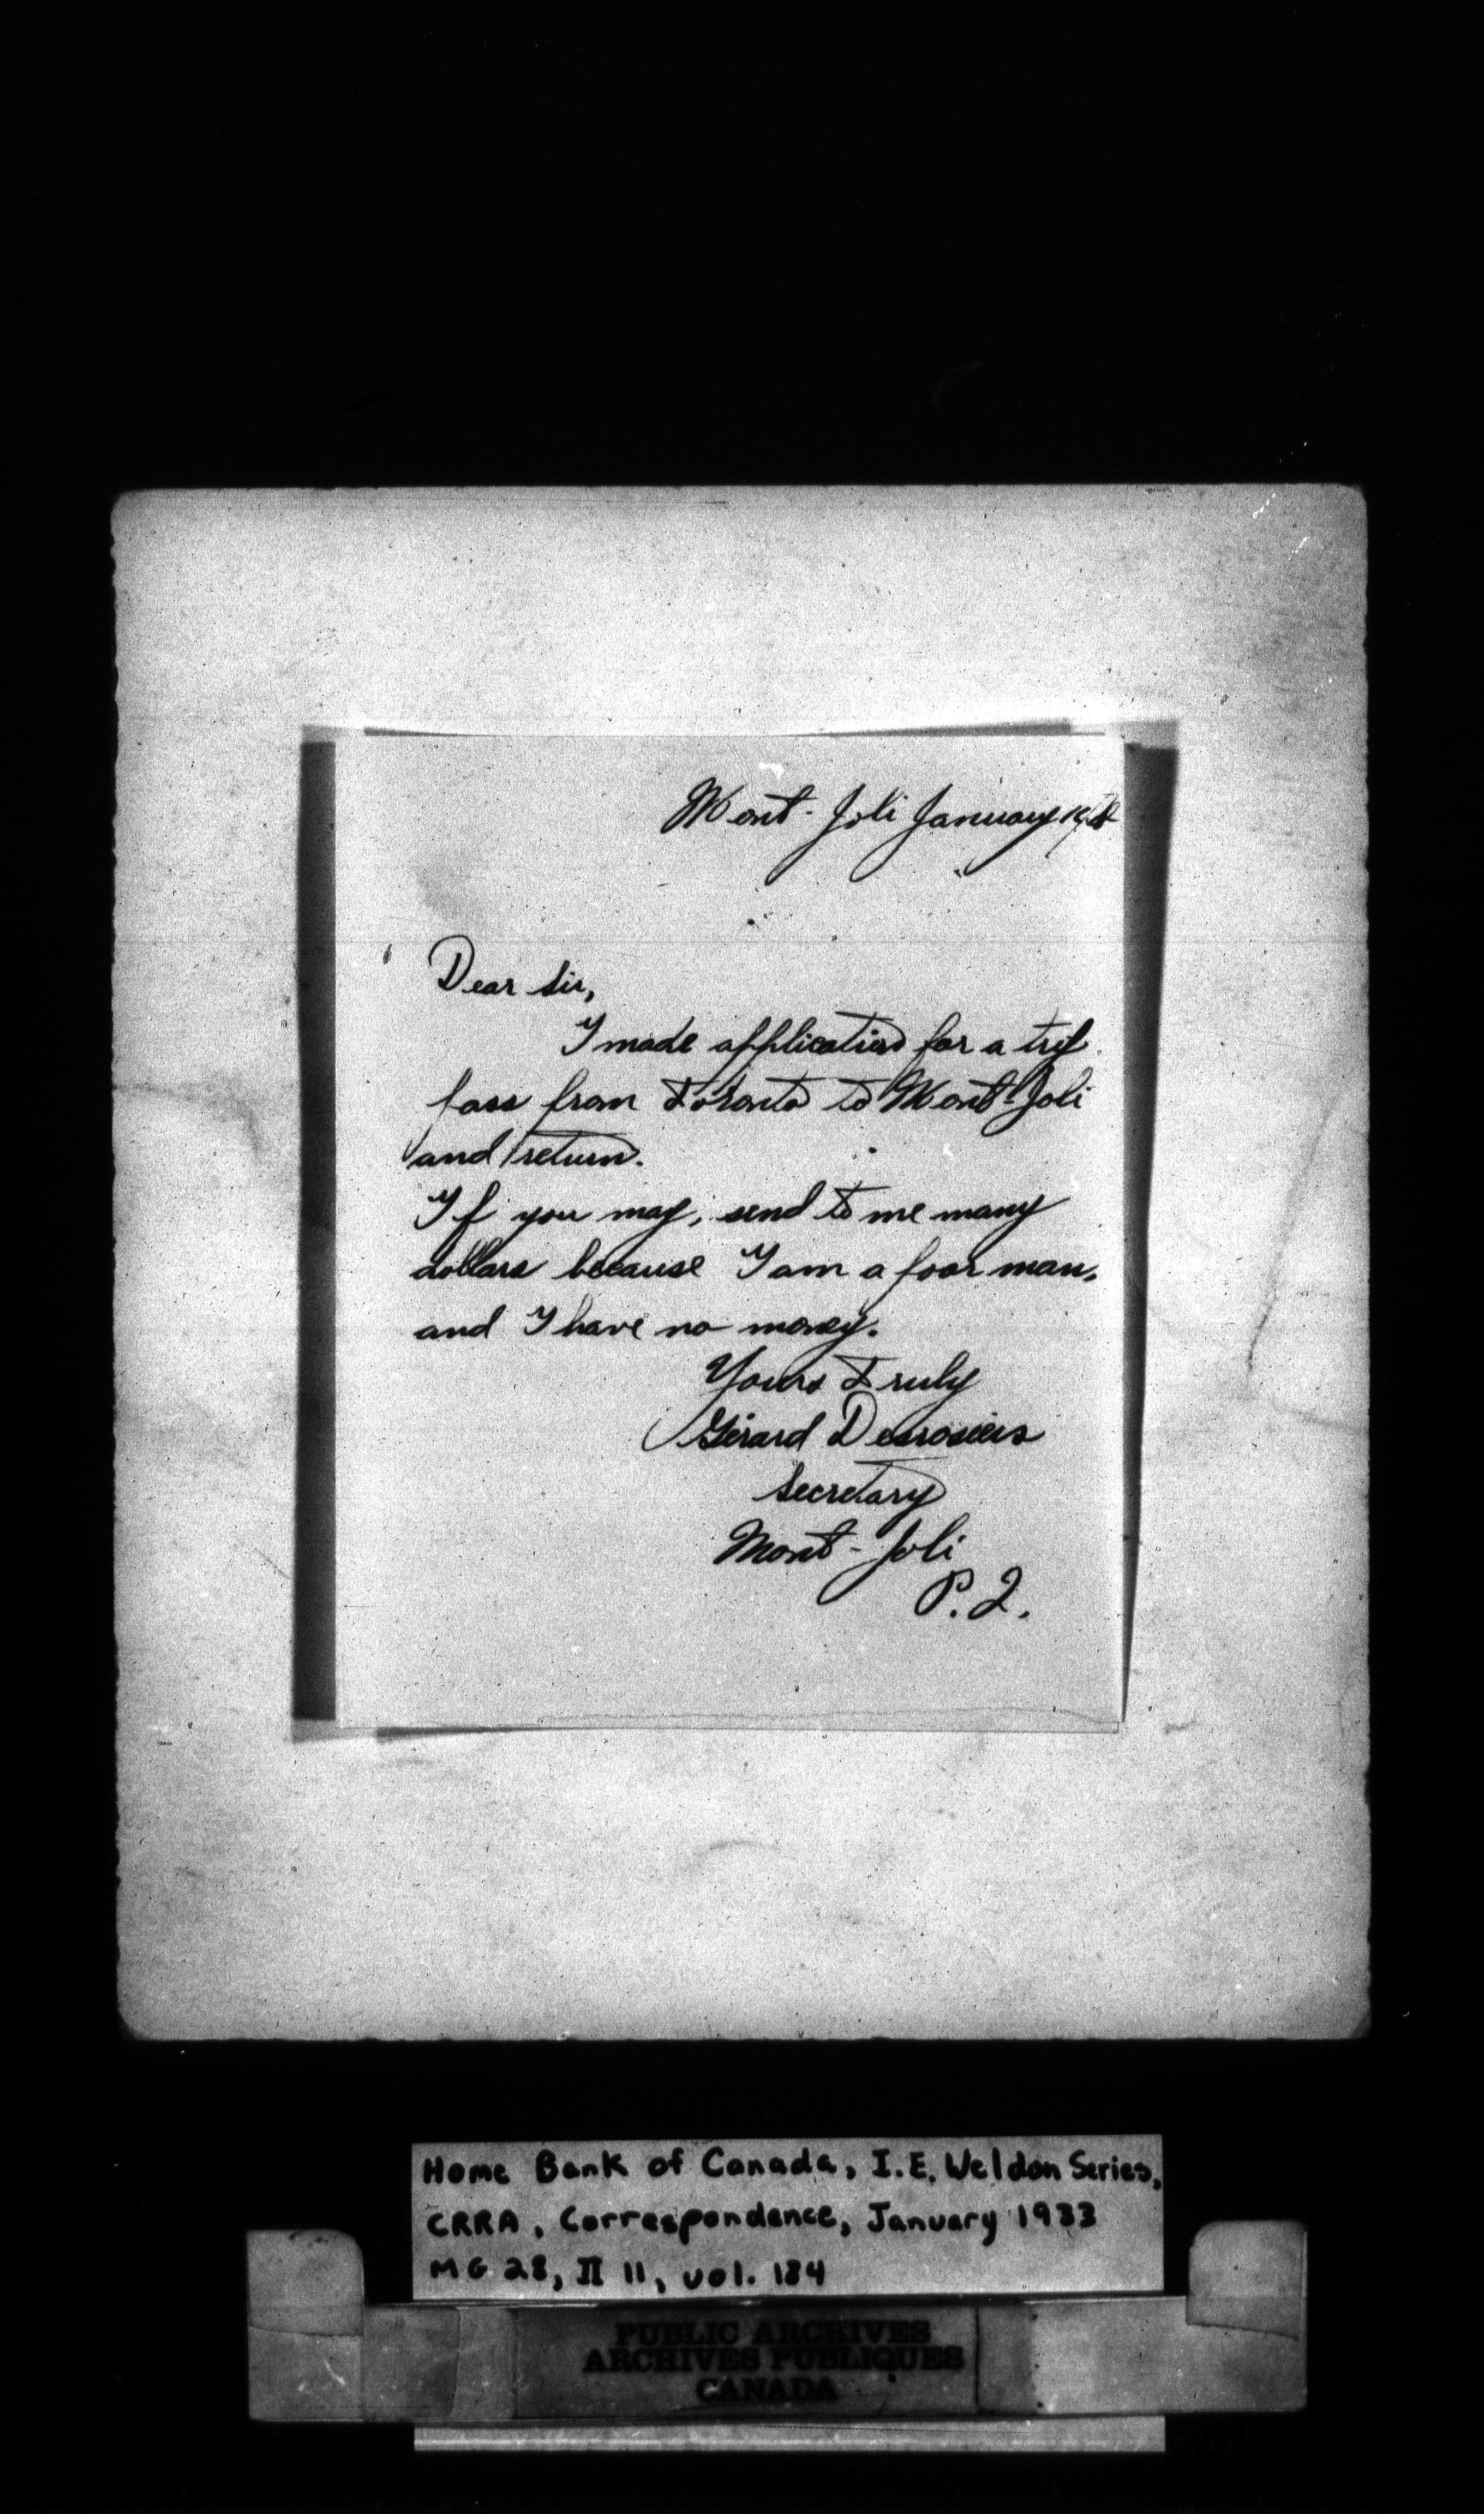 Mont-Joli January
Dear Sir,
I made application for a trip
pass from Toronto to Mont-Joli
and return.
If you may, send to me many
dollars because I am a poor man,
and I have no money.
Yours Truly
Gérard Desrosiers
Secretary
Mont-Joli
P.Q.
Home Bank of Canada, I.E. Weldon Series,
CRRA, Correspondence, January 1933
MG 28, II 11, vol. 184
PUBLIC ARCHIVES
ARCHIVES PUBLIQUES
CANADA